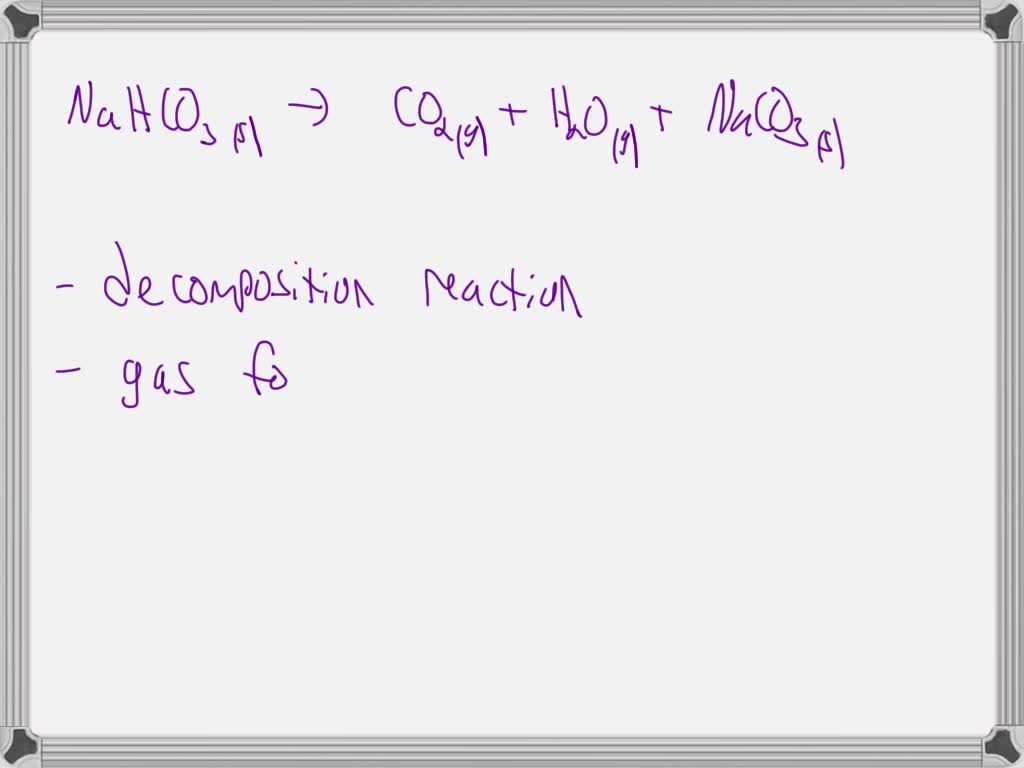 NaHCO₃(s) → CO₂(g) + H₂O(g) + NaCO₃(s)
- decomposition reaction
- gas fo